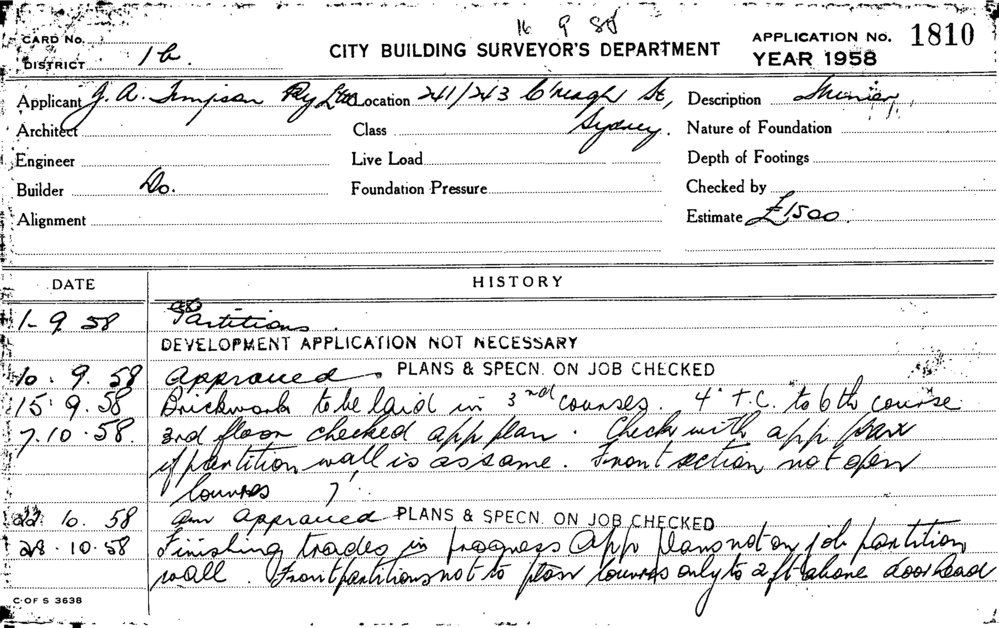 16 9 58
CARD No.
DISTRICT 1b.
CITY BUILDING SURVEYOR'S DEPARTMENT
APPLICATION No. 1810
YEAR 1958
Applicant J. A. Simpson Pty Ltd Location 241/243 C'reagh St, Description
Architect Class Sydney. Nature of Foundation
Engineer Live Load Depth of Footings
Builder Do. Foundation Pressure Checked by
Alignment Estimate £1500.
DATE HISTORY
1-9 58 Partitions.
DEVELOPMENT APPLICATION NOT NECESSARY
10. 9. 58 Approved. PLANS & SPECN. ON JOB CHECKED
15. 9. 58 Brickwork to be laid in 3nd courses. 4" T.C. to 6th course
7.10.58. 3rd floor checked app plan. Check with app plan
if partition wall is as same. Front section not open
louvres 7'.
22. 10. 58 am approved PLANS & SPECN. ON JOB CHECKED
28.10.58 Finishing trades in progress App plans not on job partition
wall. Front partitions not to plan louvres only to 2 ft above door head
C-OF S 3638